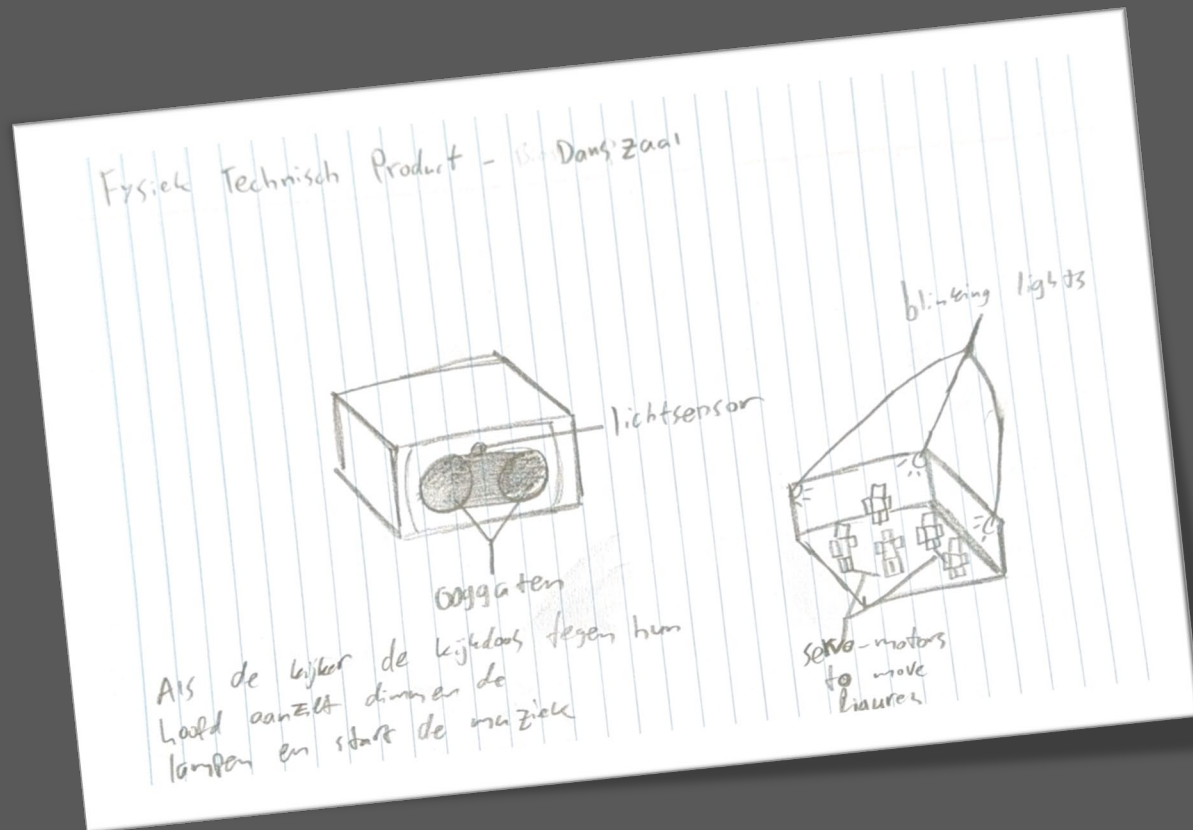 Fysiek Technisch Product - Danszaal
blinking lights
lichtsensor
ooggaten
Als de kijker de kijkdoos tegen hun
hoofd aanzitt dimmen de
lampen en start de muziek
servo-motors
to move
figures